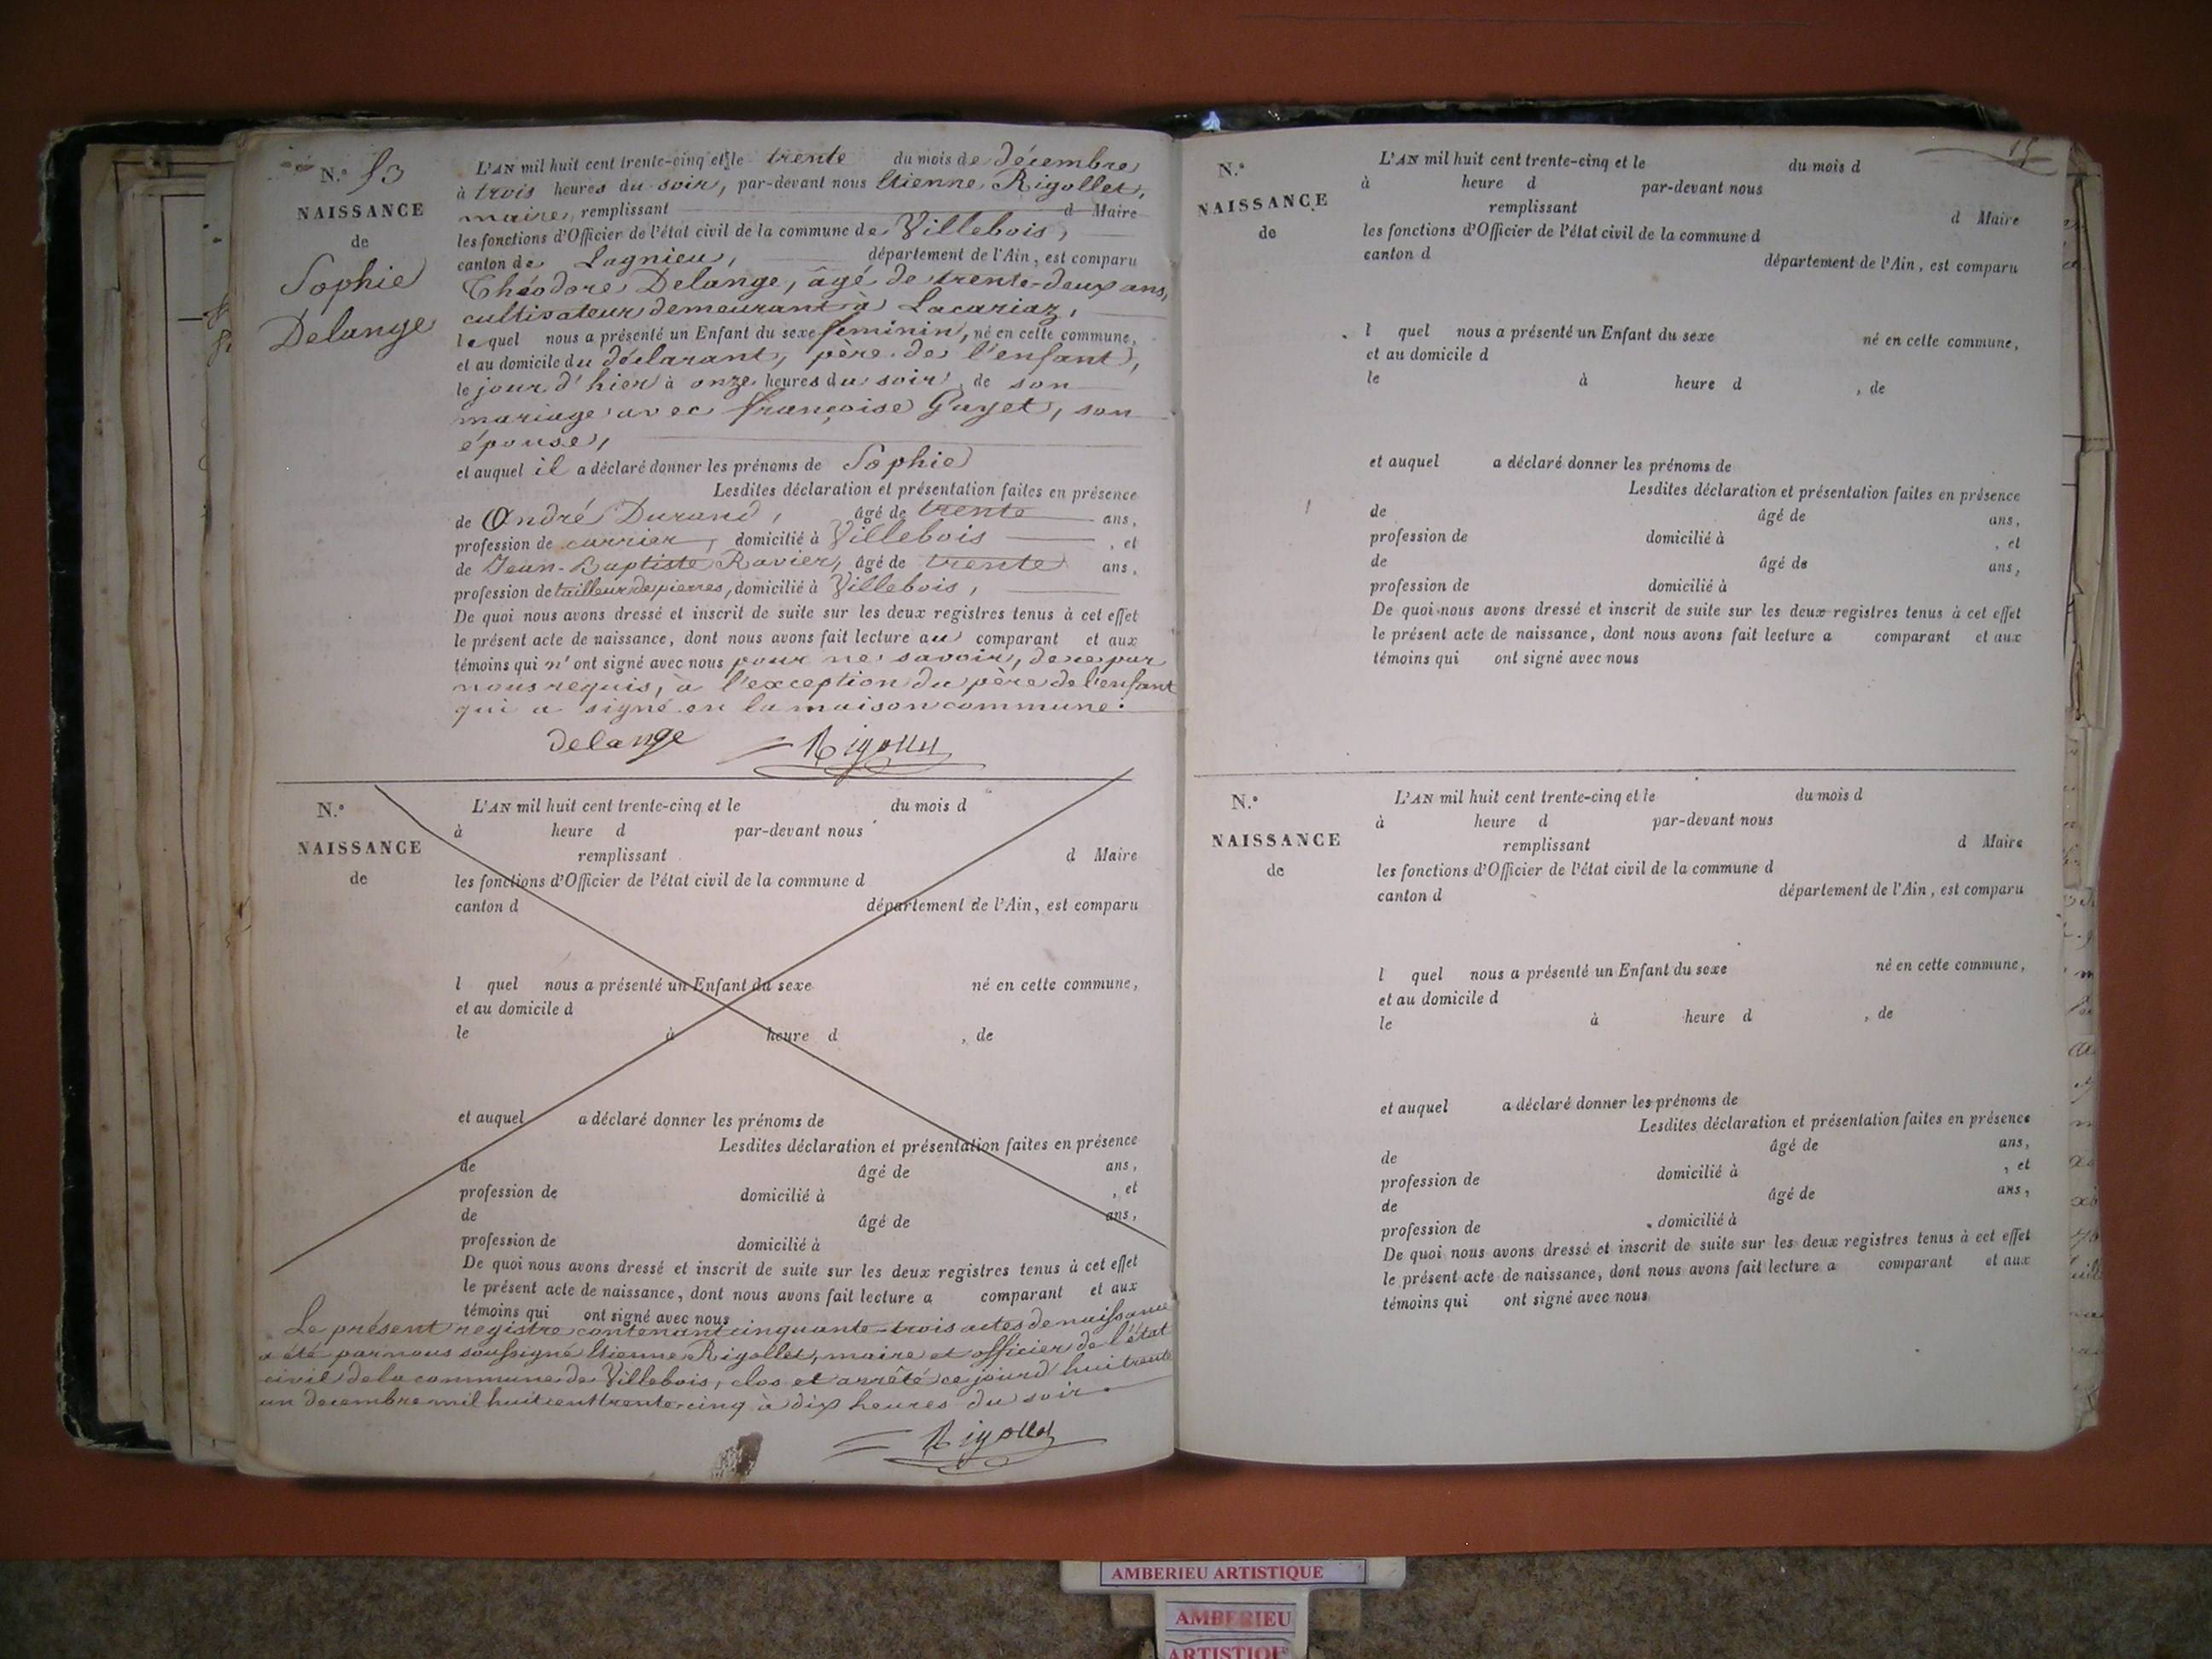 N.° 53
NAISSANCE
de
Sophie
Delange
L'AN mil huit cent trente-cinq et le trente du mois de décembre
à trois heures du soir, par-devant nous Etienne Rigollet,
maire, remplissant d Maire
les fonctions d'Officier de l'état civil de la commune de Villebois,
canton de Lagnieu, département de l'Ain, est comparu
Théodore Delange, âgé de trente-deux ans,
cultivateur demeurant à Lacariaz,
lequel nous a présenté un Enfant du sexe féminin, né en cette commune,
et au domicile du déclarant, père de l'enfant,
le jour d'hier à onze heures du soir, de son
mariage avec françoise Guyet, son
épouse,
et auquel il a déclaré donner les prénoms de Sophie
Lesdites déclaration et présentation faites en présence
de André Durand, âgé de trente ans,
profession de carrier, domicilié à Villebois , et
de Jean-Baptiste Ravier, âgé de trente ans,
profession de tailleur de pierres, domicilié à Villebois,
De quoi nous avons dressé et inscrit de suite sur les deux registres tenus à cet effet
le présent acte de naissance, dont nous avons fait lecture au comparant et aux
témoins qui n'ont signé avec nous pour ne savoir, de ce par
nous requis, à l'exception du père de l'enfant
qui a signé en la maison commune.
delange Rigollet
N.°
NAISSANCE
de
L'AN mil huit cent trente-cinq et le du mois d
à heure d par-devant nous
remplissant d Maire
les fonctions d'Officier de l'état civil de la commune d
canton d département de l'Ain, est comparu
l quel nous a présenté un Enfant du sexe né en cette commune,
et au domicile d
le à heure d , de
et auquel a déclaré donner les prénoms de
Lesdites déclaration et présentation faites en présence
de âgé de ans,
profession de domicilié à , et
de âgé de ans,
profession de domicilié à
De quoi nous avons dressé et inscrit de suite sur les deux registres tenus à cet effet
le présent acte de naissance, dont nous avons fait lecture a comparant et aux
témoins qui ont signé avec nous
Le présent registre contenant cinquante-trois actes de naissance
a été par nous soussigné Etienne Rigollet, maire et officier de l'état
civil de la commune de Villebois, clos et arrêté ce jourd'hui trente
un decembre mil huit cent trente-cinq à dix heures du soir
Rigollet
N.°
NAISSANCE
de
L'AN mil huit cent trente-cinq et le du mois d
à heure d par-devant nous
remplissant d Maire
les fonctions d'Officier de l'état civil de la commune d
canton d département de l'Ain, est comparu
l quel nous a présenté un Enfant du sexe né en cette commune,
et au domicile d
le à heure d , de
et auquel a déclaré donner les prénoms de
Lesdites déclaration et présentation faites en présence
de âgé de ans,
profession de domicilié à , et
de âgé de ans,
profession de domicilié à
De quoi nous avons dressé et inscrit de suite sur les deux registres tenus à cet effet
le présent acte de naissance, dont nous avons fait lecture a comparant et aux
témoins qui ont signé avec nous
N.°
NAISSANCE
de
L'AN mil huit cent trente-cinq et le du mois d
à heure d par-devant nous
remplissant d Maire
les fonctions d'Officier de l'état civil de la commune d
canton d département de l'Ain, est comparu
l quel nous a présenté un Enfant du sexe né en cette commune,
et au domicile d
le à heure d , de
et auquel a déclaré donner les prénoms de
Lesdites déclaration et présentation faites en présence
de âgé de ans,
profession de domicilié à , et
de âgé de ans,
profession de domicilié à
De quoi nous avons dressé et inscrit de suite sur les deux registres tenus à cet effet
le présent acte de naissance, dont nous avons fait lecture a comparant et aux
témoins qui ont signé avec nous
AMBERIEU ARTISTIQUE
AMBERIEU
ARTISTIQUE